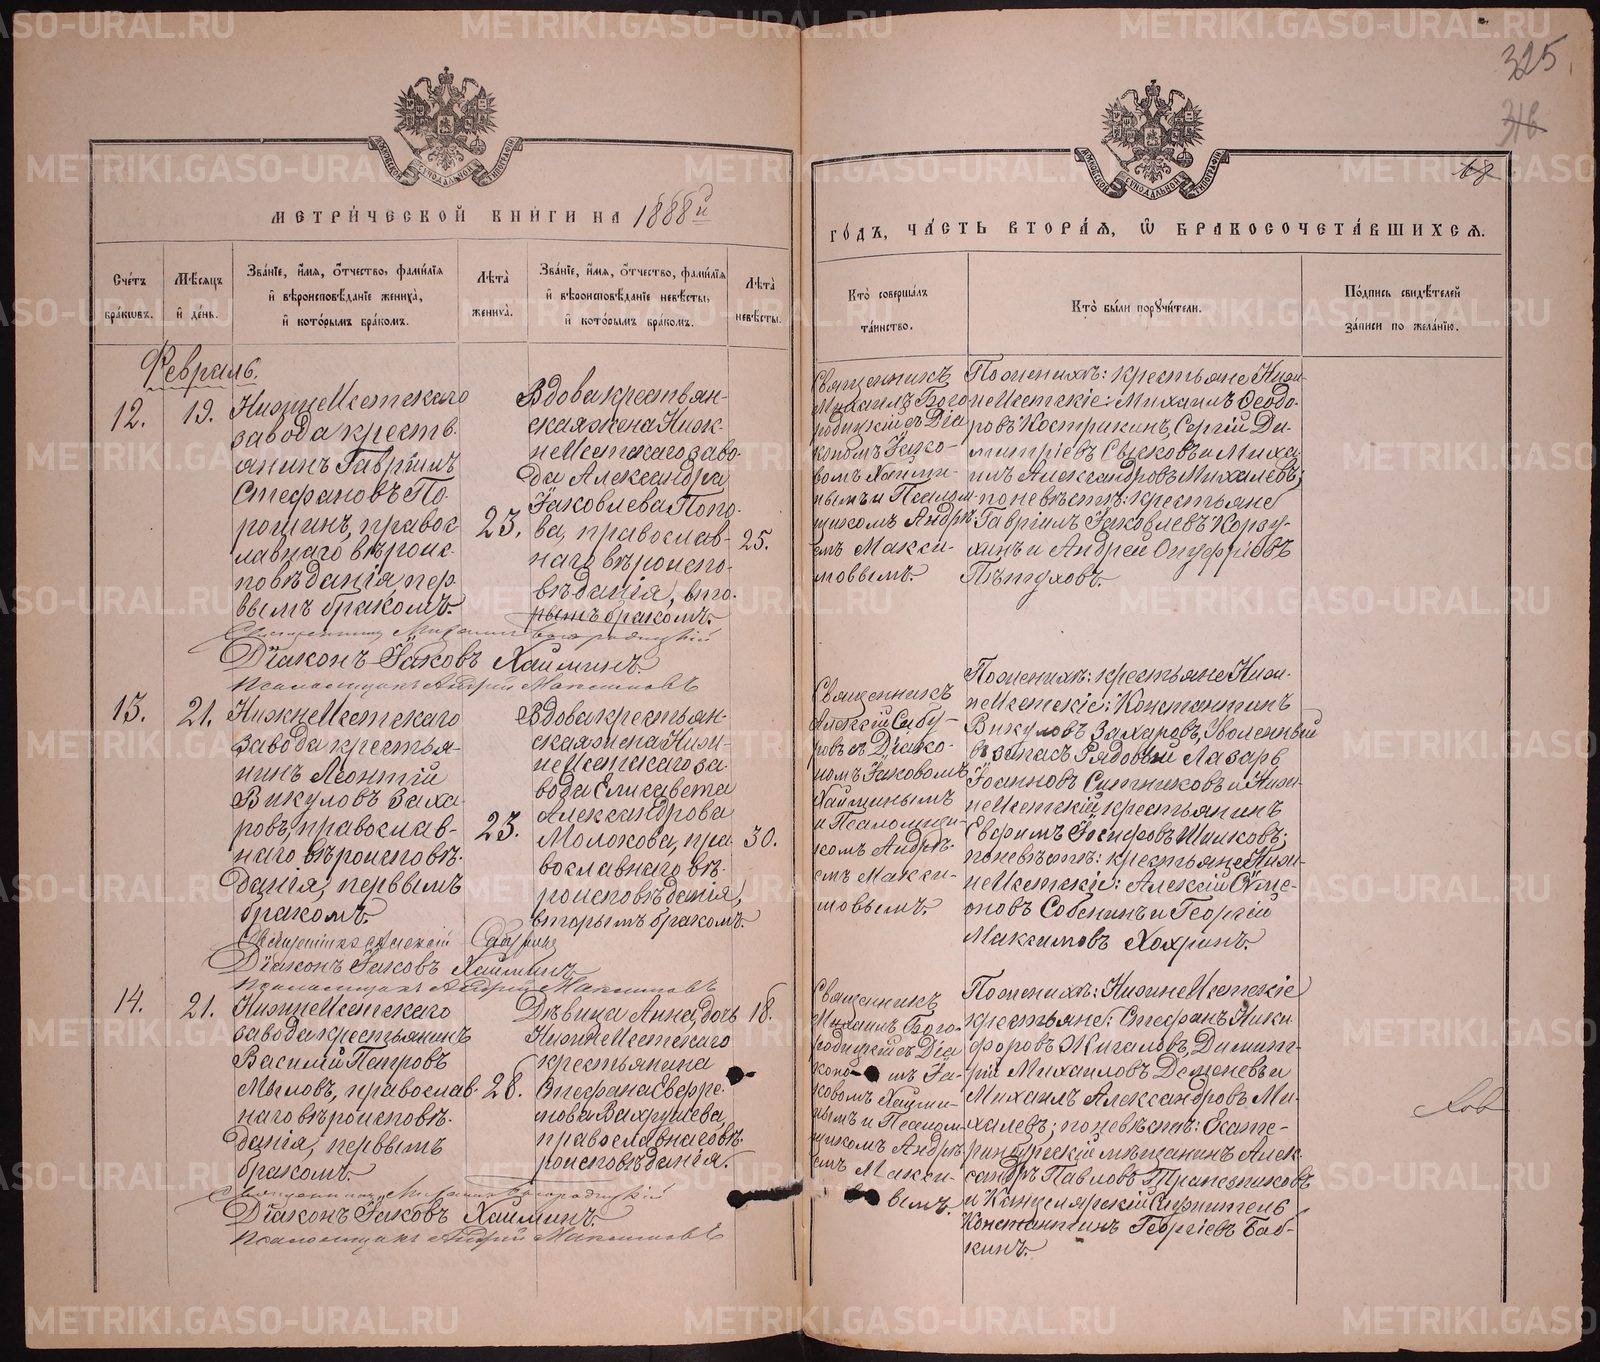 325.
318
18
МОСКОВСКОЙ СѴНОДАЛЬНОЙ ТИПОГРАФІИ
МЕТРИ́ЧЕСКОЙ КНИ́ГИ НА 1888й
ГО́ДЪ, ЧА́СТЬ ВТОРА́Я, Ѡ БРАКОСОЧЕТА́ВШИХСЯ.
Сче́тъ бра́кѡвъ.
Мѣ́сяцъ и҆ де́нь.
Зва́нїе, и҆́мя, ѻ҆́тчество, фами́лїя и҆ вѣроисповѣ́данїе жениха̀, и҆ кото́рымъ бра́комъ.
Лѣ́та жениха̀.
Зва́нїе, и҆́мя, ѻ҆́тчество, фами́лїя и҆ вѣроисповѣ́данїе невѣ́сты, и҆ кото́рымъ бра́комъ.
Лѣ́та невѣ́сты.
Кто̀ соверша́лъ та́инство.
Кто̀ бы́ли порꙋчи́тели.
По́дпись свидѣ́телей за́писи по жела́нїю.
Февраль.
12.
19.
НижнеИсетскаго
завода кресть-
янинъ Гавріилъ
Стефановъ По-
рошинъ, правос-
лавнаго вѣроис-
повѣданія, пер-
вымъ бракомъ.
23.
Вдова крестьян-
ская жена Ниж-
неИсетскаго заво-
да Александра
Іаковлева Попо-
ва, православ-
наго вѣроиспо-
вѣданія, вто-
рымъ бракомъ.
25.
Священникъ
Михаилъ Бого
родицкій съ Діа
кономъ Іако-
вомъ Хаими-
нымъ и Псалом-
щикомъ Андрѣ-
емъ Макси-
мовымъ.
По женихѣ: крестьяне Ниж-
неИсетскіе: Михаилъ Ѳеодо-
ровъ Костринъ, Сергій Ди-
митріевъ Сысковъ и Миха-
илъ Александровъ Михалевъ;
по невѣстѣ: крестьяне
Гавріилъ Іаковлевъ Корзу-
хинъ и Андрей Онуфріевъ
Пѣтуховъ.
Священникъ Михаилъ Богородицкій
Діаконъ Іаковъ Хаиминъ.
Псаломщикъ Андрей Максимовъ
13.
21.
НижнеИсетскаго
завода крестья-
нинъ Леонтій
Викуловъ Заха-
ровъ, православ-
наго вѣроисповѣ-
данія, первымъ
бракомъ.
23.
Вдова крестьян-
ская жена Ниж-
неИсетскаго за-
вода Елисавета
Александрова
Молокова, пра-
вославнаго вѣ-
роисповѣданія,
вторымъ бракомъ.
30.
Священникъ
Алексій Сабу-
ровъ съ Діако-
номъ Іаковомъ
Хаиминымъ
и Псаломщи-
комъ Андрѣ-
емъ Макси-
мовымъ.
По женихѣ: крестьяне Ниж-
неИсетскіе: Константинъ
Викуловъ Захаровъ, Уволенный
въ запасъ Рядовой Лазарь
Іоанновъ Ситниковъ и Ниж-
неИсетскій крестьянинъ
Евфимъ Іосифовъ Шишковъ;
по невѣстѣ: крестьяне Ниж-
неИсетскіе: Алексій Симе-
оновъ Собенинъ и Георгій
Максимовъ Хохринъ.
Священникъ Алексій Сабуровъ
Діаконъ Іаковъ Хаиминъ
Псаломщикъ Андрей Максимовъ
14.
21.
НижнеИсетскаго
завода крестьянинъ
Василій Петровъ
Мыловъ, православ-
наго вѣроисповѣ-
данія, первымъ
бракомъ.
28.
Дѣвица Анна, дочь
НижнеИсетскаго
крестьянина
Стефана Евфре-
мова Вахрушева,
православнаго вѣ-
роисповѣданія.
18.
Священникъ
Михаилъ Бого-
родицкій съ Діа
коно мъ Іа-
ковомъ Хаими-
нымъ и Псалом-
щикомъ Андрѣ
емъ Макси-
вымъ.
По женихѣ: НижнеИсетскіе
крестьяне: Стефанъ Ники
форовъ Жигаловъ, Димит-
рій Михаиловъ Деменевъ и
Михаилъ Александровъ Ми-
халевъ; по невѣстѣ: Екате-
ринбургскій мѣщанинъ Алек-
сандръ Павловъ Трапезниковъ
и Канцелярскій Служитель
Константинъ Георгіевъ Баб-
кинъ.
Священникъ Михаилъ Богородицкій
Діаконъ Іаковъ Хаиминъ.
Псаломщикъ Андрей Максимовъ
METRIKI.GASO-URAL.RU